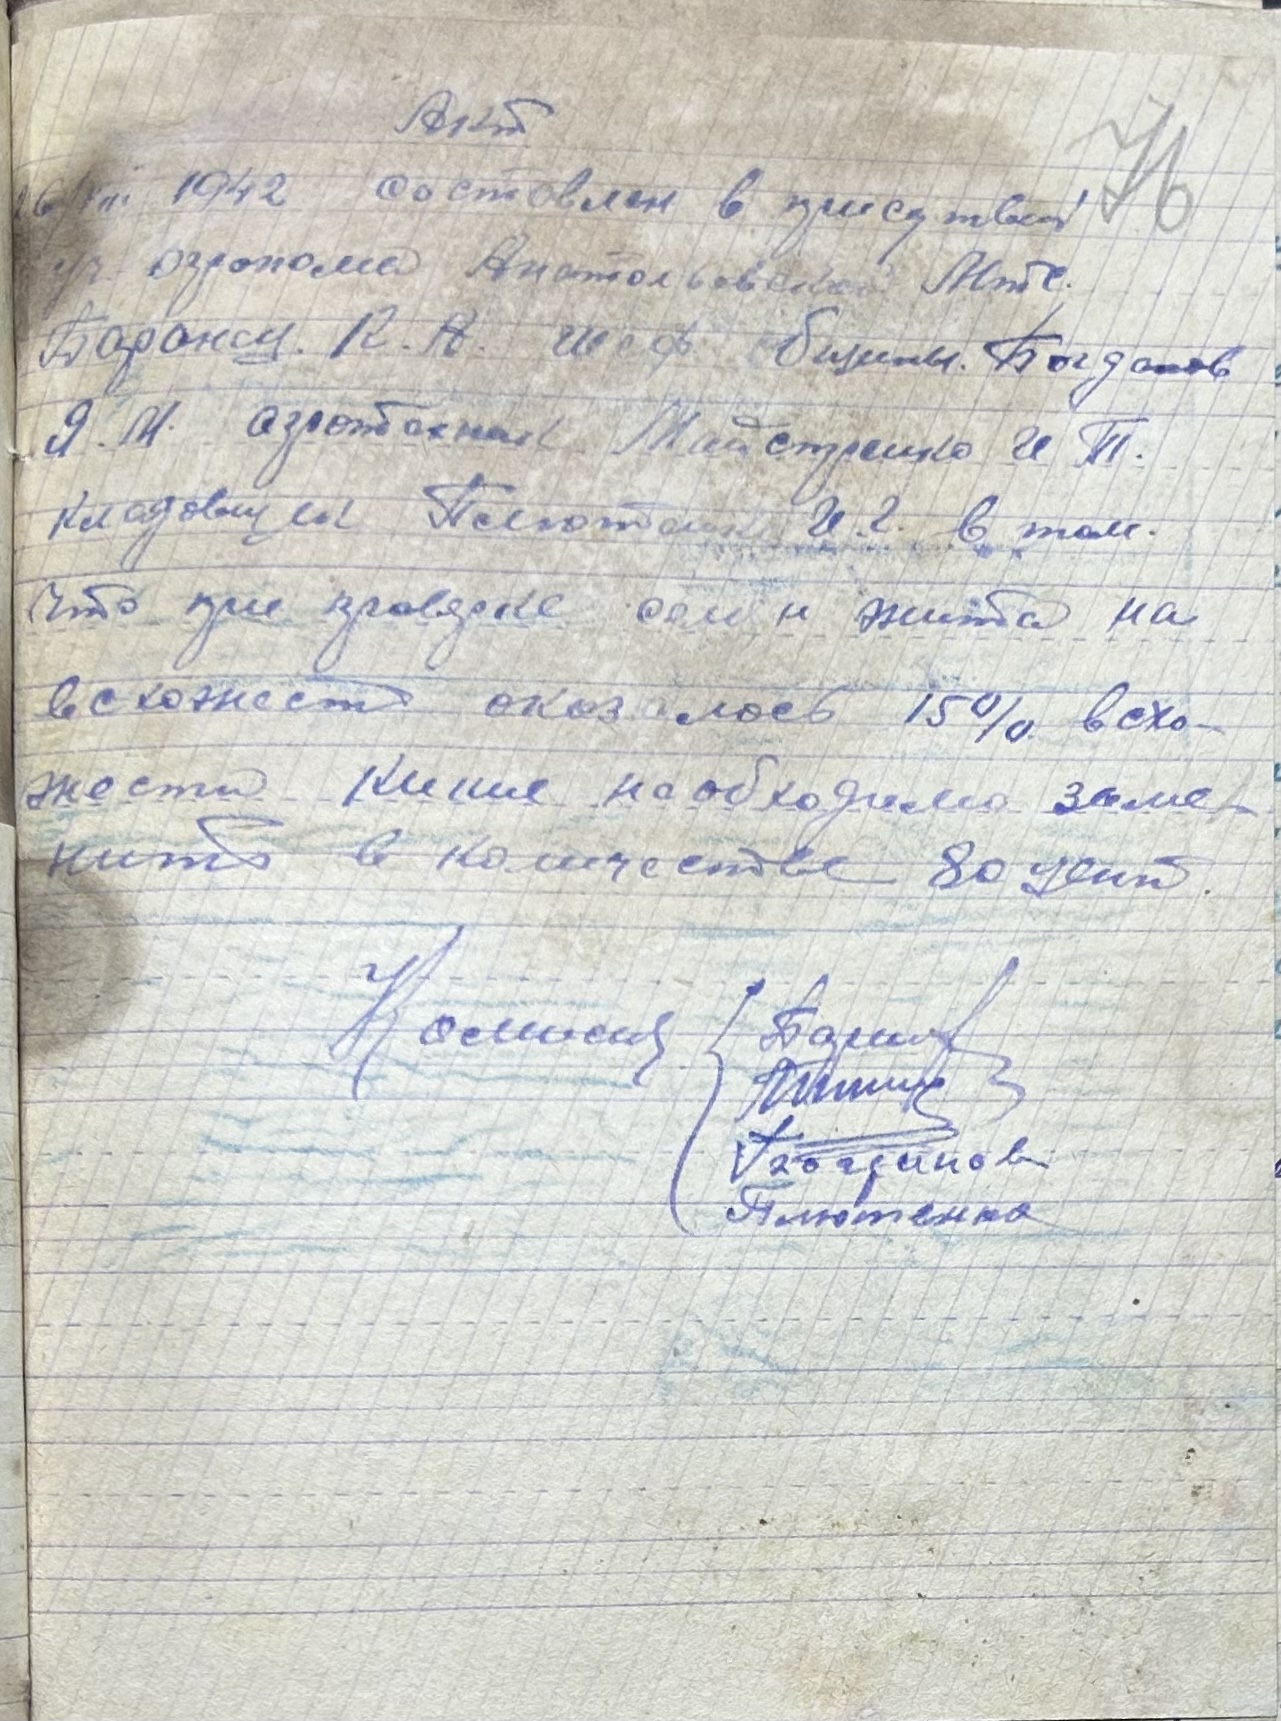 Акт
76
26/VIII 1942 составлен в присутвии
уч агронома Анатольевской Мтс.
К. А. шеф Общины. Богданов
Я. М. агротехник Майстренко И П.
кладовщик Плютенко И. Г. в том.
Что при проверке семян жита на
всхожест оказалось 15% всхо-
жести Кикие необходимо заме-
нить в количестве 80 цент.
Комиссия
Богданов
Плютенко